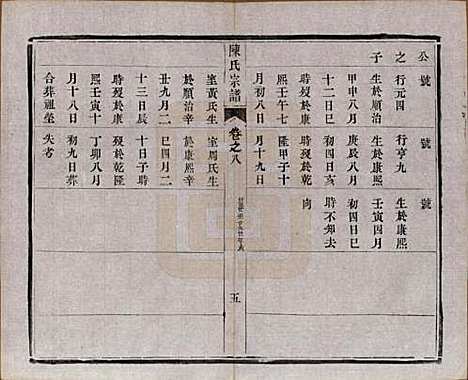 公號
之行元四
子生於順治
甲申八月
十二日巳
時殁於康
熙壬午七
月初八日
號
行亨九
生於康熙
庚辰八月
初四日亥
時殁於乾
隆甲子十
月十九日
號
生於康熙
壬寅四月
初四日巳
時不知去
向
陳氏宗譜
卷之八
五
室黃氏生
於順治辛
卯九月二
十三日辰
時殁於康
熙壬寅十
月十八日
合葬祖塋
室周氏生
於康熙辛
巳四月二
十日子時
殁於乾隆
丁卯八月
初九日葬
失考